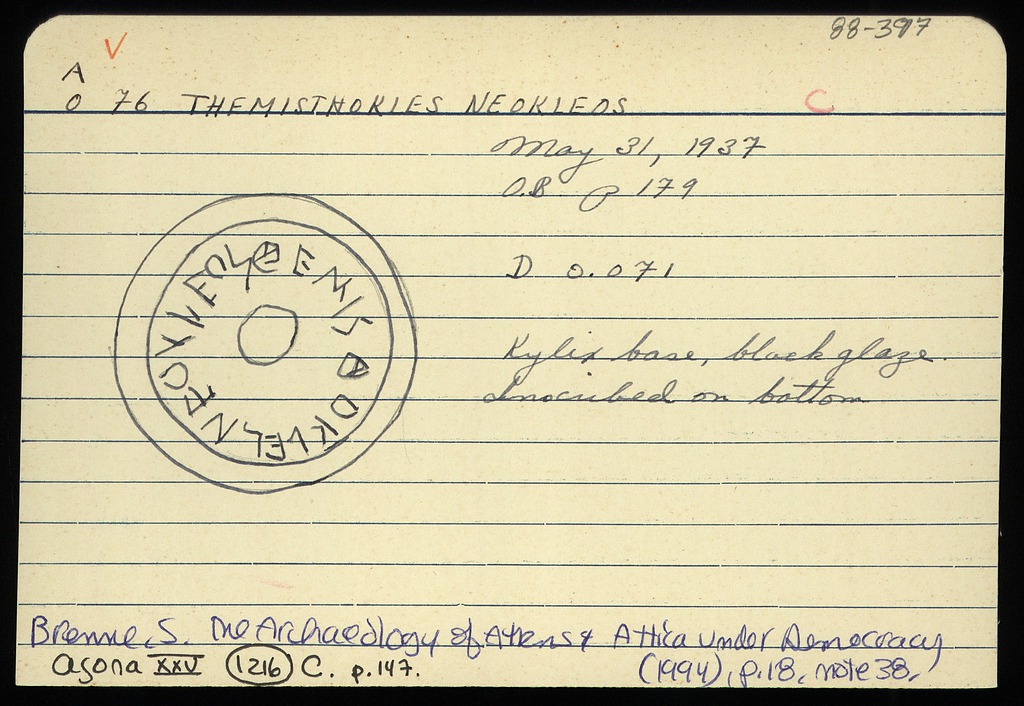 88-397
V
A
O 76 THEMISTHOKLES NEOKLEOS
C
May 31, 1937
O.B. p 179
D 0.071
Kylix base, black glaze.
Inscribed on bottom
Brenne, S. The Archaeology of Athens & Attica under Democracy
(1994), p.18, note 38.
Agora XXV 1216 C. p.147.